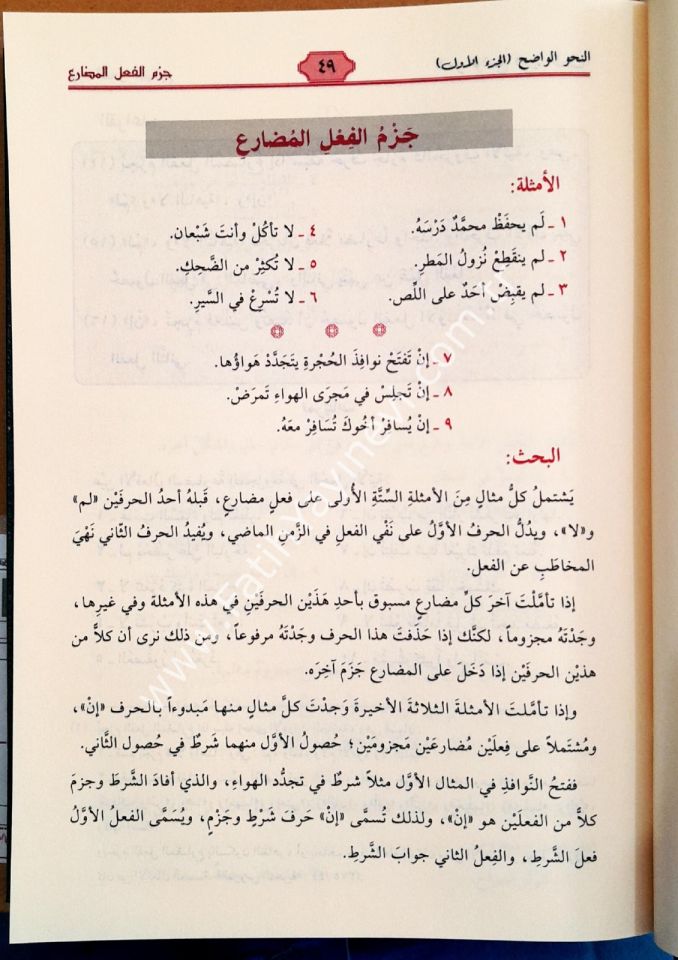 النحو الواضح (الجزء الأول)
٤٩
جزم الفعل المضارع
جَزْمُ الفِعْلِ المُضارعِ
الأمثلة:
١ ـ لَم يحفَظْ محمَّدٌ دَرْسَهُ.
٤ ـ لا تأكُلْ وأنتَ شَبْعان.
٢ ـ لم ينقَطِعْ نُزولُ المَطَرِ.
٥ ـ لا تُكثِرْ من الضَّحِكِ.
٣ ـ لم يقبِضْ أحَدٌ على اللِّص.
٦ ـ لا تُسْرِعْ في السَّيرِ.
٧ ـ إنْ تَفتَحْ نوافِذَ الحُجْرةِ يتجَدَّدْ هَواؤُها.
٨ ـ إنْ تَجلِسْ في مَجرَى الهواءِ تَمرَضْ.
٩ ـ إنْ يُسافرْ أخُوكَ تُسَافِرْ معَهُ.
البحث:
يَشتملُ كلُّ مثالٍ مِنَ الأمثلةِ السِّتَّةِ الأُولى على فعلٍ مضارعٍ، قَبلهُ أحدُ الحرفَيْن «لم»
و«لا»، ويدُلُّ الحرف الأوَّلُ على نَفْي الفعل في الزَّمنِ الماضي، ويُفيدُ الحرفُ الثّاني نَهْيَ
المخاطَبِ عن الفعل.
إذا تأمَّلْتَ آخرَ كلِّ مضارعٍ مسبوق بأحدِ هَذَيْن الحرفَيْنِ في هذه الأمثلة وفي غيرِها،
وَجَدْتَهُ مجزوماً، لكنَّك إذا حَذَفتَ هذا الحرف وَجَدْتَهُ مرفوعاً، ومن ذلك نرى أن كلاًّ من
هذيْن الحرفَيْنِ إذا دَخَلَ على المضارع جَزَمَ آخِرَه.
وإذا تأمَّلتَ الأمثلةَ الثلاثةَ الأخيرةَ وَجَدْتَ كلَّ مثال منها مَبدوءاً بالحرف «إنْ»،
ومُشتَملاً على فِعلَيْن مُضارعَيْن مَجزومَيْن؛ حُصولُ الأوَّلِ منهما شَرطٌ في حُصول الثَّاني.
ففتحُ النَّوافذِ في المثال الأوَّلِ مثلاً شرطٌ في تجدُّد الهواءِ، والذي أفادَ الشَّرطَ وجزمَ
كلاًّ من الفعلَيْن هو «إنْ»، ولذلك تُسمَّى «إنْ» حَرفَ شَرطٍ وجَزْمٍ، ويُسَمَّى الفعلُ الأوَّلُ
فعلَ الشَّرطِ، والفِعلُ الثاني جوابَ الشَّرطِ.
www.Fatihyayinevi.com